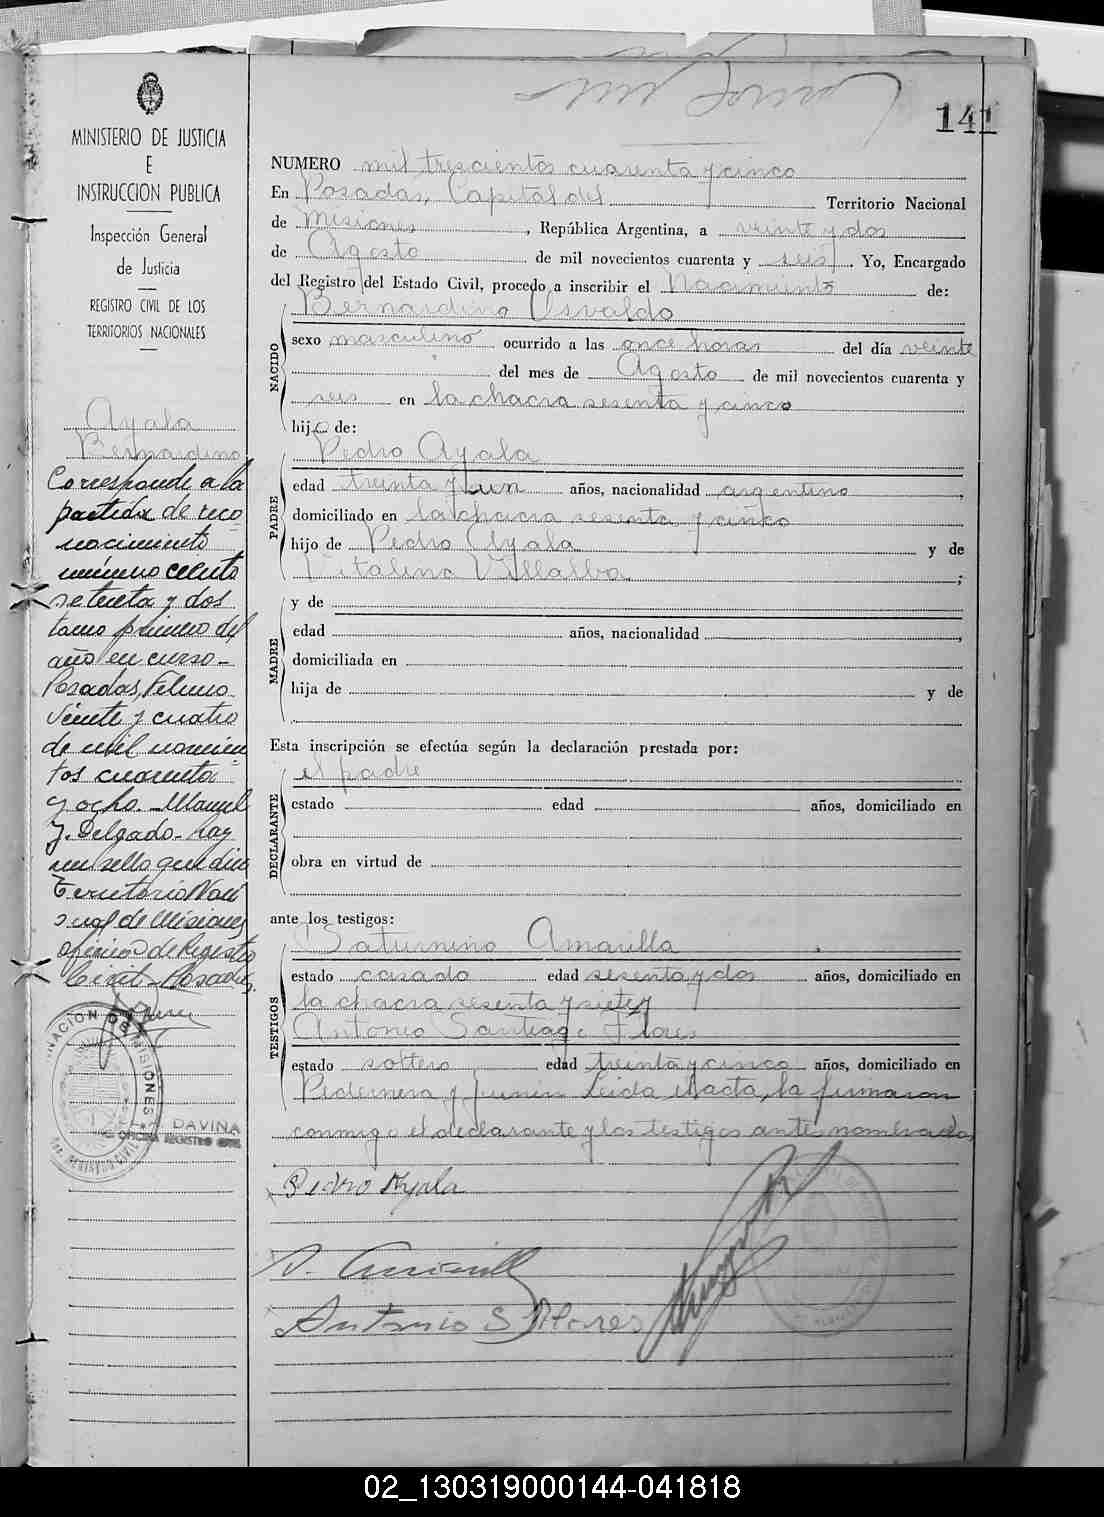 141
MINISTERIO DE JUSTICIA
E
INSTRUCCION PUBLICA
Inspección General
de Justicia
REGISTRO CIVIL DE LOS
TERRITORIOS NACIONALES
Ayala
Bernardino
Corresponde a la
partida de reco
nocimiento
número ciento
setenta y dos
tomo primero del
año en curso-
Posadas, Febrero
veinte y cuatro
de mil novecien
tos cuarenta
y ocho.- Manuel
J. Delgado- hay
un sello que dice
Territorio Naci
onal de Misiones
oficina de Registro
Civil- Posadas.
NUMERO mil trescientos cuarenta y cinco
En Posadas, Capital del Territorio Nacional
de Misiones, República Argentina, a veinte y dos
de Agosto de mil novecientos cuarenta y seis. Yo, Encargado
del Registro del Estado Civil, procedo a inscribir el Nacimiento de:
NACIDO
Bernardino Osvaldo
sexo masculino ocurrido a las once horas del día veinte
del mes de Agosto de mil novecientos cuarenta y
seis en la chacra sesenta y cinco
hijo de:
PADRE
Pedro Ayala
edad treinta y un años, nacionalidad argentino,
domiciliado en la chacra sesenta y cinco
hijo de Pedro Ayala y de
Vitalina Villalba;
MADRE
y de
edad años, nacionalidad ,
domiciliada en
hija de y de
Esta inscripción se efectúa según la declaración prestada por:
DECLARANTE
el padre
estado edad años, domiciliado en
obra en virtud de
ante los testigos:
TESTIGOS
Saturnino Amarilla
estado casado edad sesenta y dos años, domiciliado en
la chacra sesenta y siete y
Antonio Santiago Flores
estado soltero edad treinta y cinco años, domiciliado en
Pedernera y Junin Leida el acta, la firmaron
conmigo el declarante y los testigos antes nombrados
Pedro Ayala
S. Amarilla
Antonio S. Flores
DAVINA
02_130319000144-041818